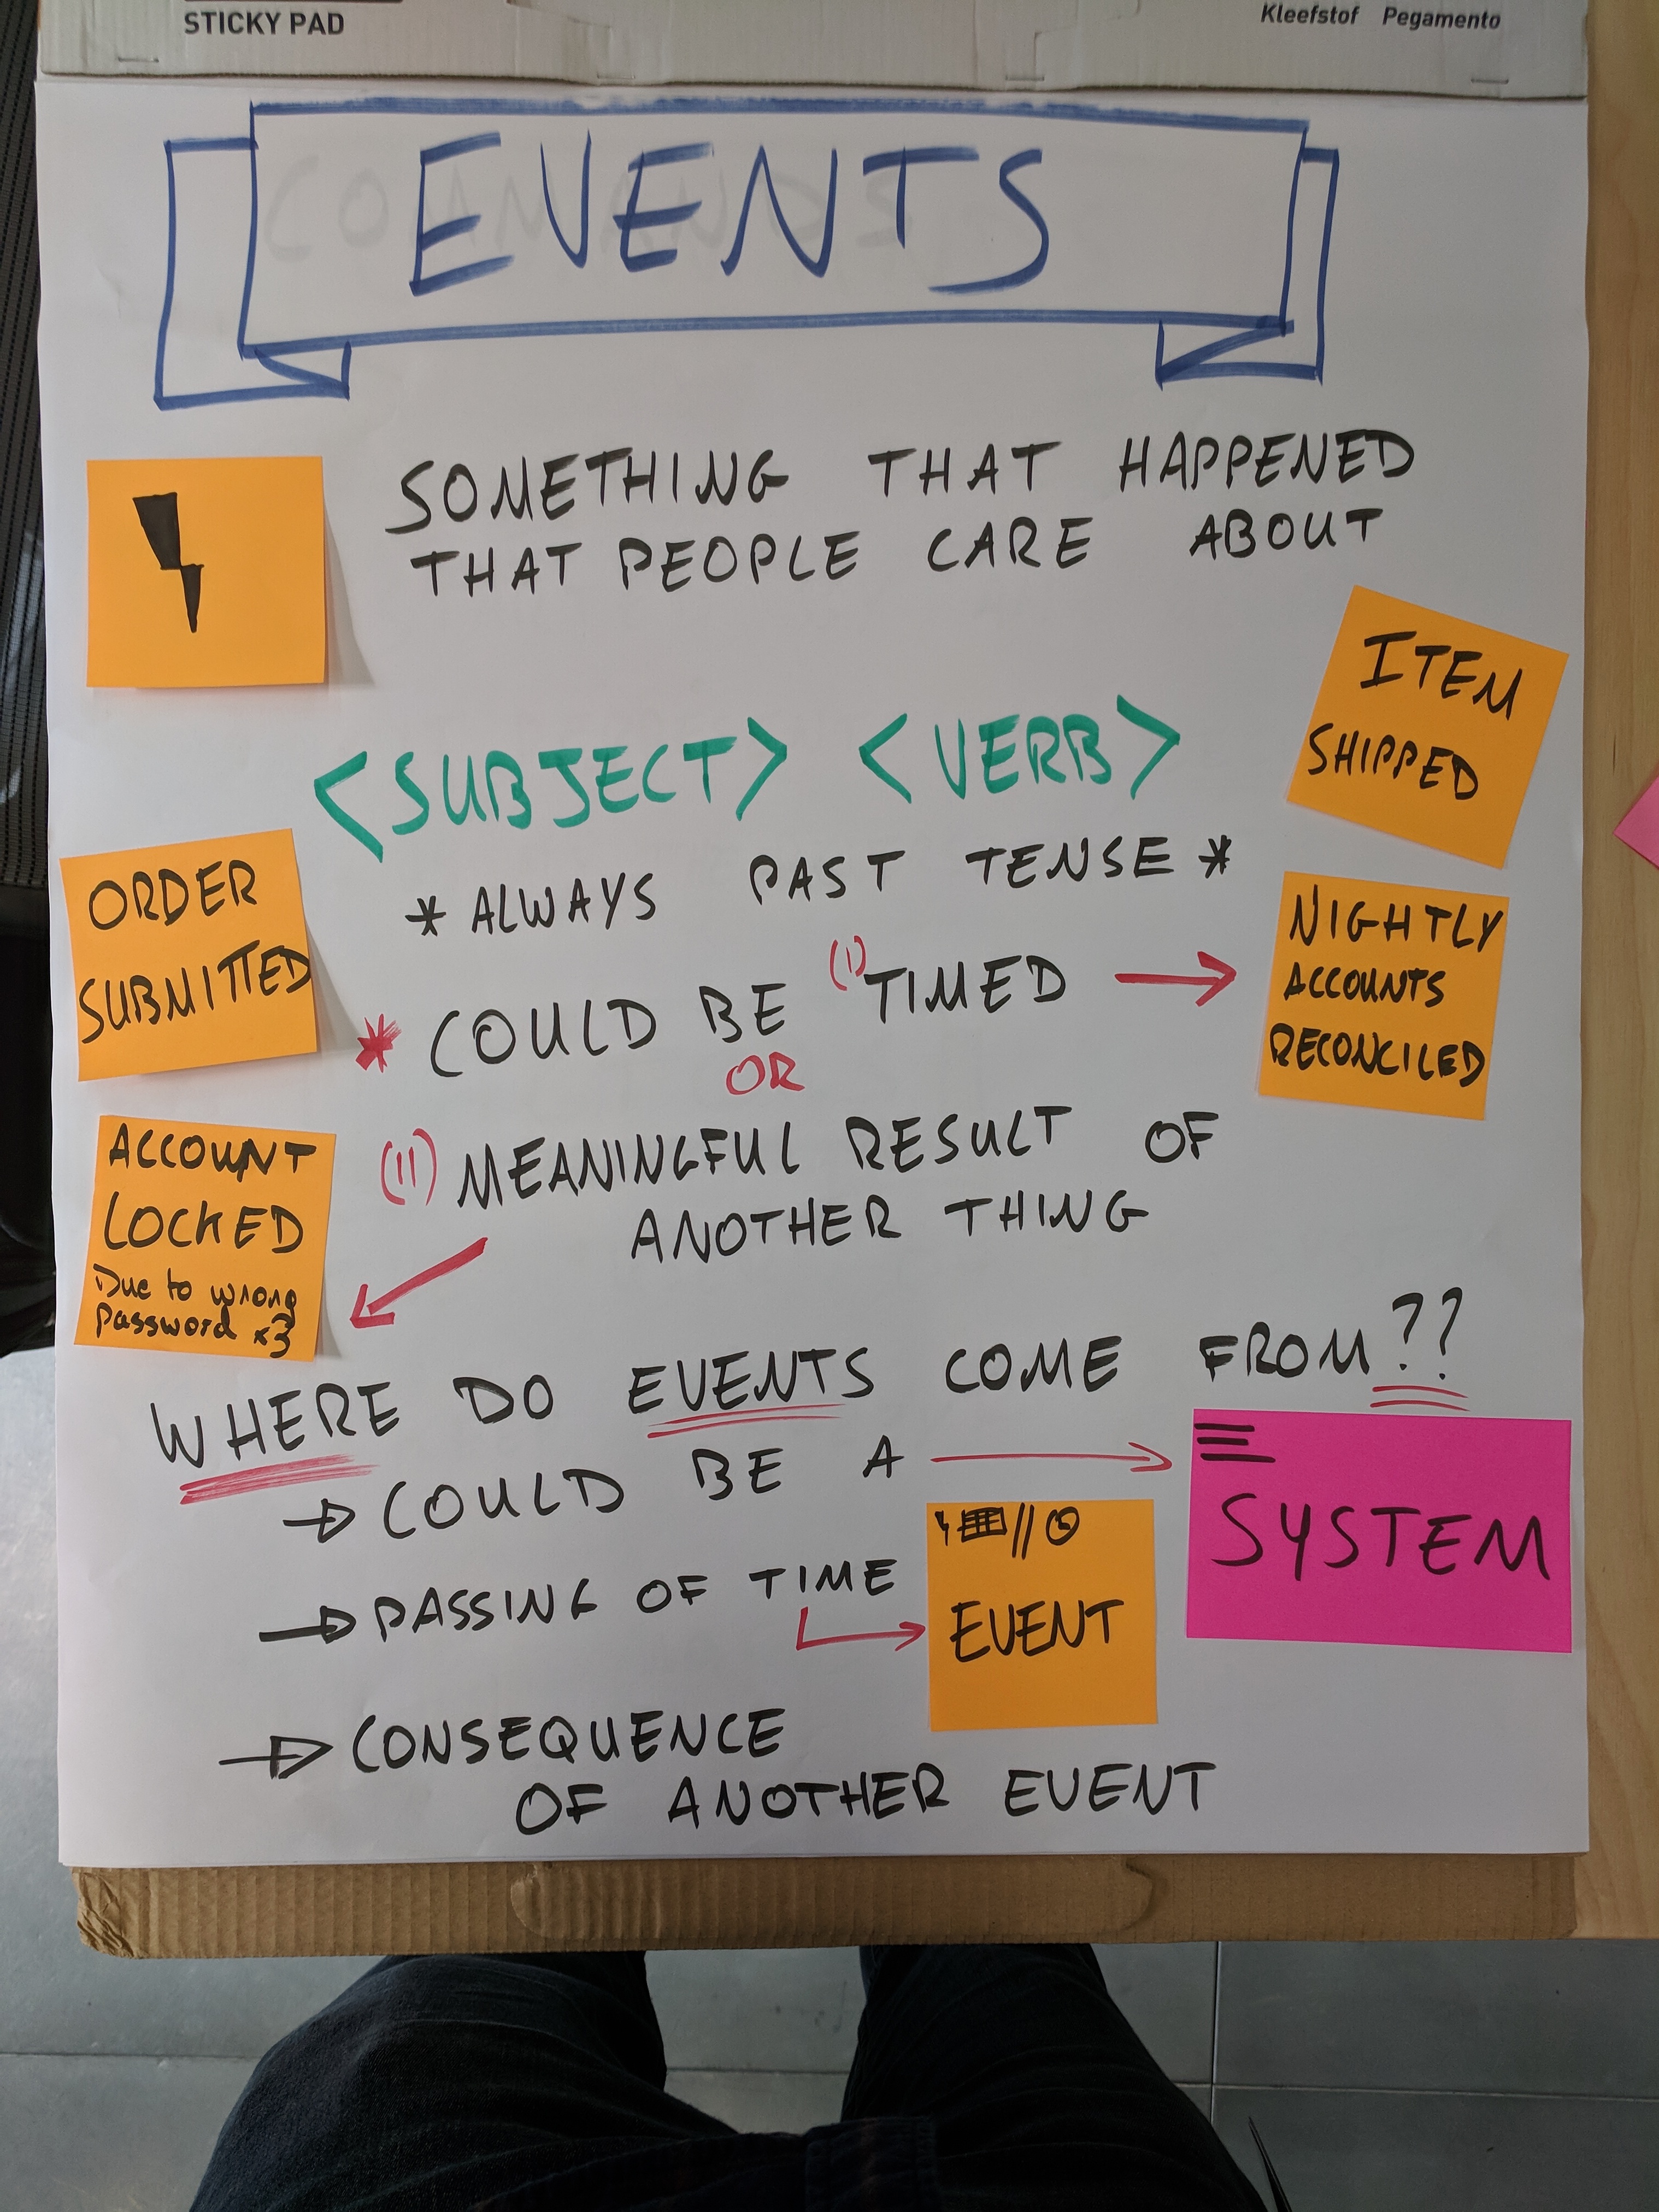 STICKY PAD
Kleefstof Pegamento
EVENTS
COMMANDS
SOMETHING THAT HAPPENED
THAT PEOPLE CARE ABOUT
ITEM
SHIPPED
<SUBJECT> <VERB>
* ALWAYS PAST TENSE *
ORDER
SUBMITTED
* COULD BE (I) TIMED →
NIGHTLY
ACCOUNTS
RECONCILED
OR
(II) MEANINGFUL RESULT OF
ANOTHER THING
ACCOUNT
LOCKED
Due to wrong
Password x3
WHERE DO EVENTS COME FROM??
→ COULD BE A →
SYSTEM
→ PASSING OF TIME
EVENT
→ CONSEQUENCE
OF ANOTHER EVENT